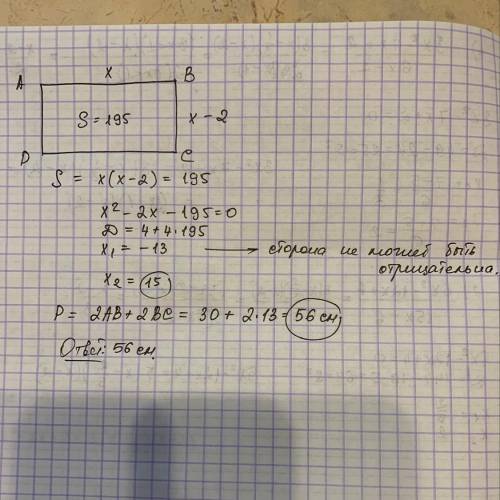 A x B
S = 195 x - 2
D C
S = x(x-2) = 195
x² - 2x - 195 = 0
D = 4 + 4·195
x₁ = -13 → сторона не может быть
отрицательна.
x₂ = 15
P = 2AB + 2BC = 30 + 2·13 = 56 см.
Ответ: 56 см.